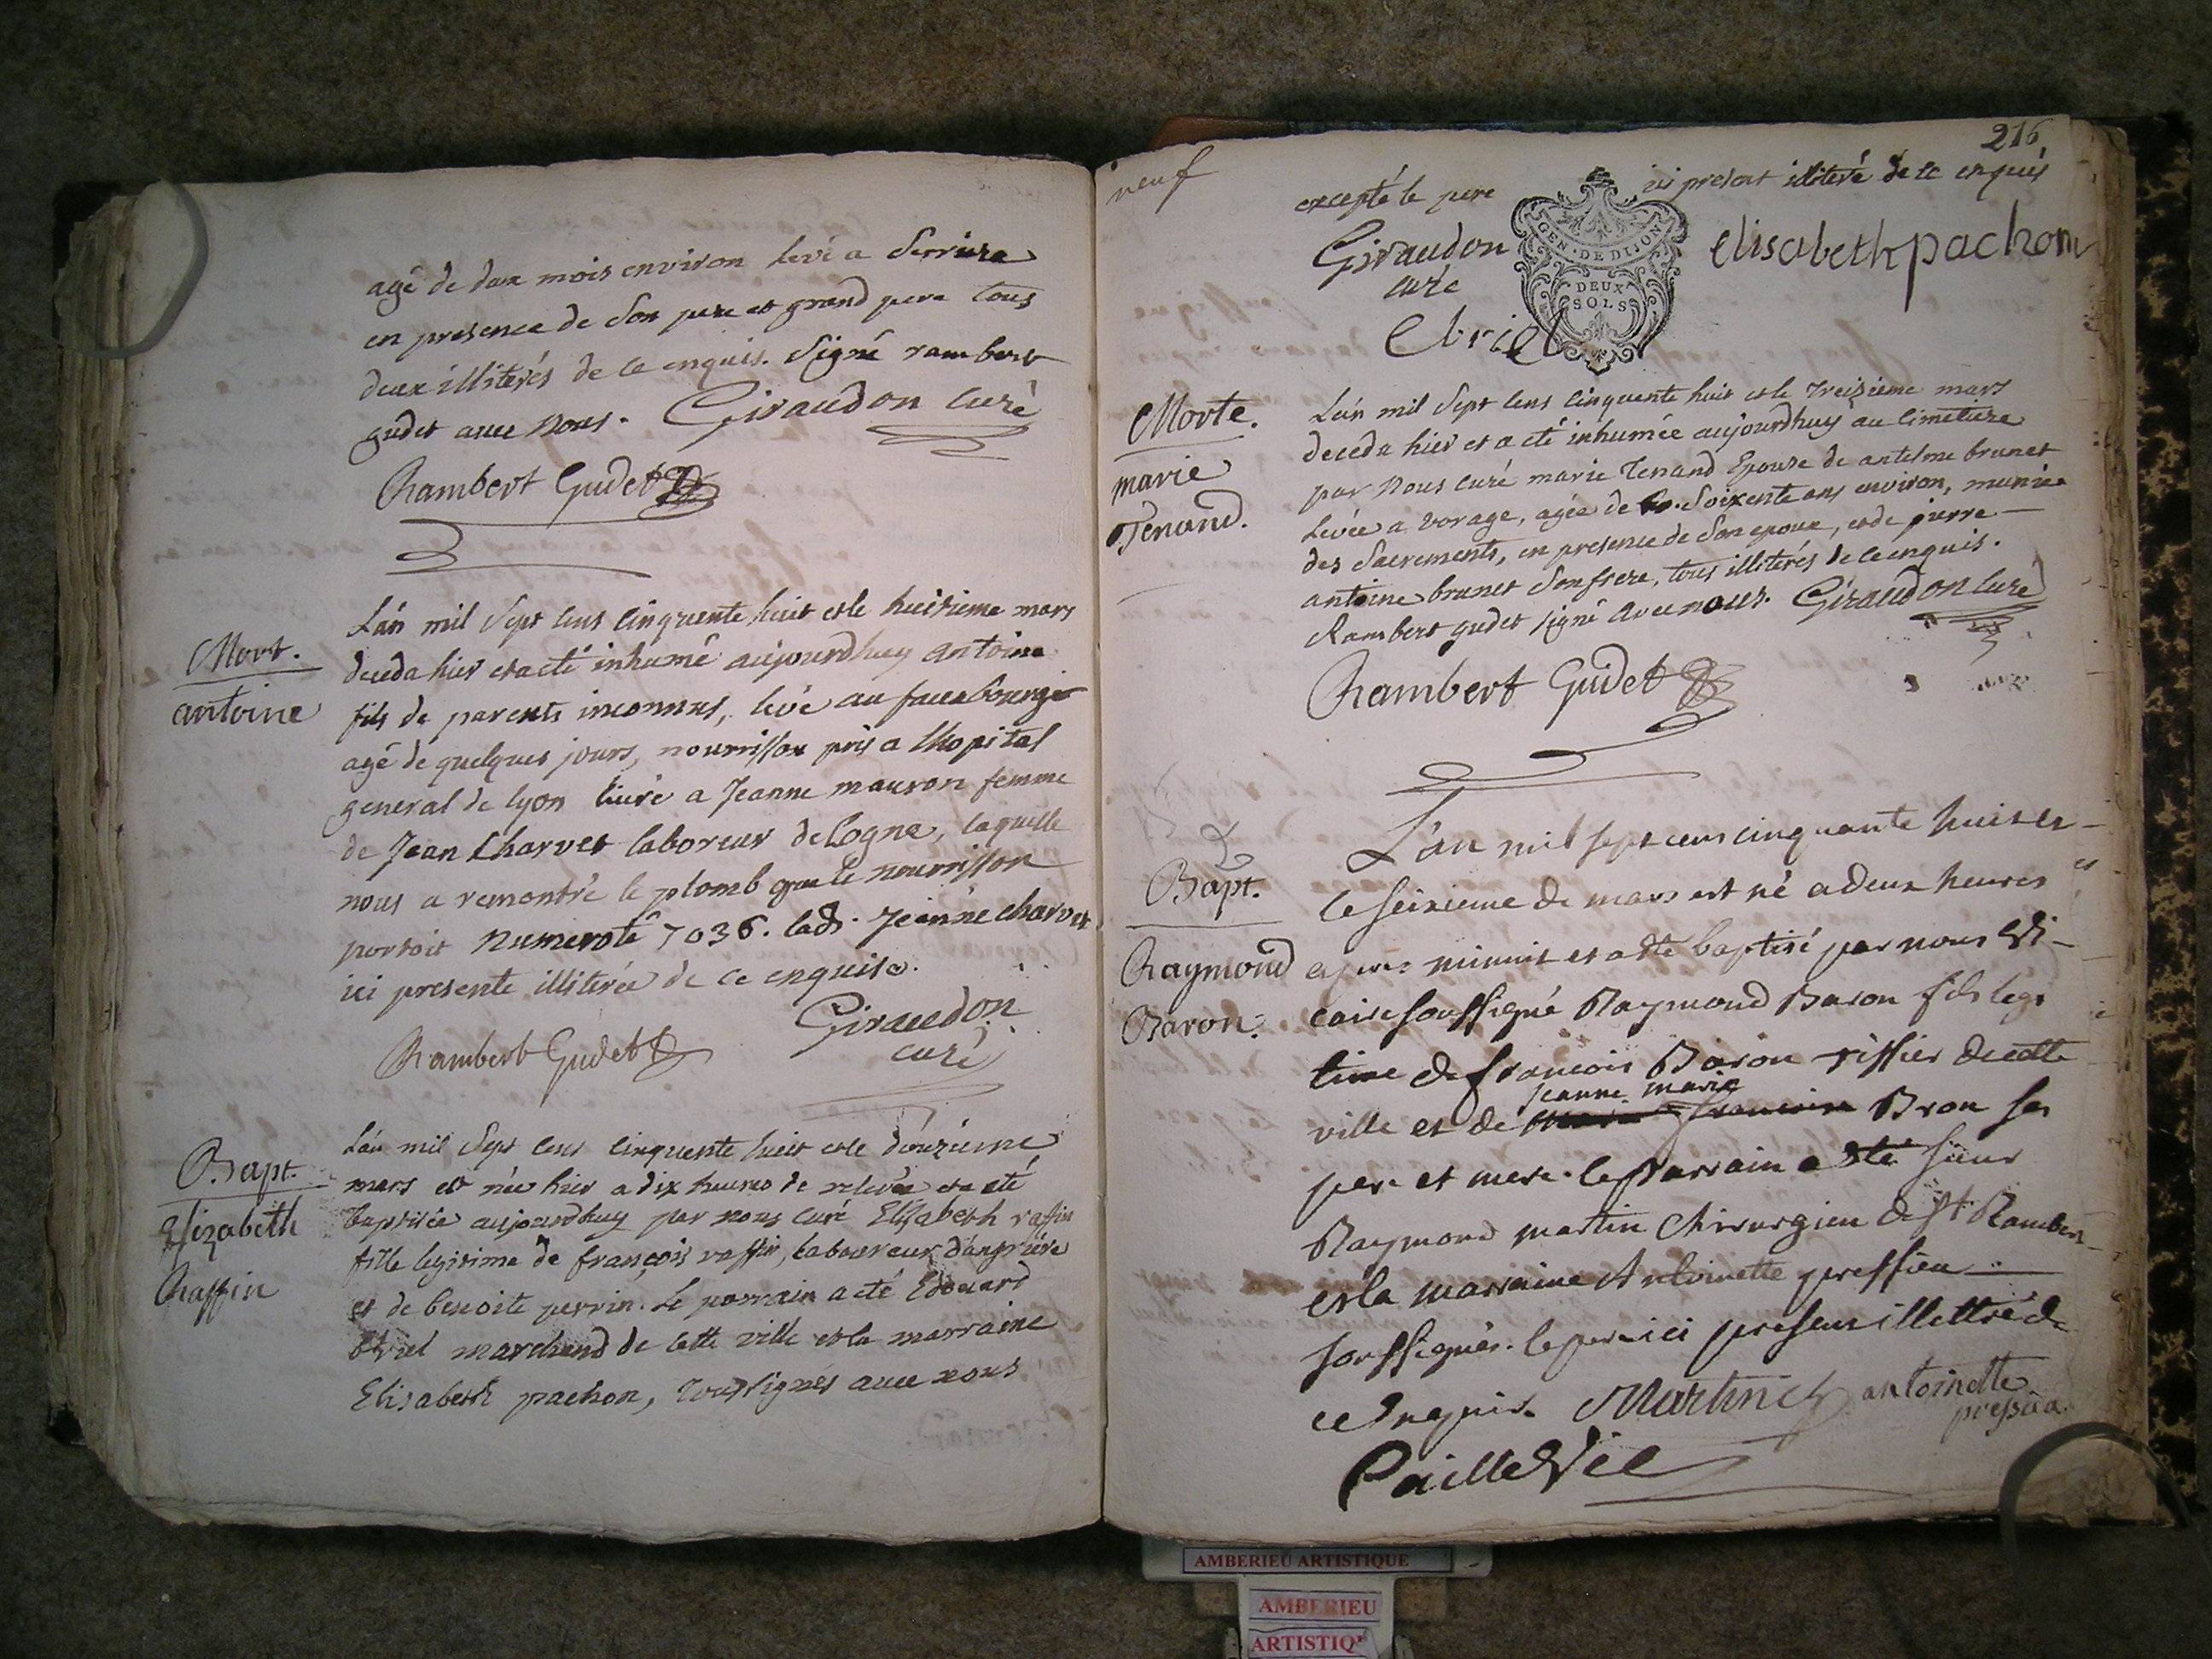 agé de deux mois environ levé a Serriere
en presence de son pere et grand pere tous
deux illiterés de ce enquis. Signé rambert
gudet avec nous. Giraudon curé
Rambert Gudet
Mort.
antoine
L'an mil Sept cens Cinquente huit et le huitieme mars
deceda hier et a eté inhumé aujourdhuy antoine
fils de parents inconnus, levé au
agé de quelques jours, nourrisson pris a lhopital
general de lyon livré a Jeanne mauron femme
de Jean Charvet laboreur de Cogna, laquelle
nous a remontré le plomb que le nourrisson
portoit numeroté 7036. lade. Jeanne charvet
ici presente illiterée de ce enquise.
Giraudon
curé
Rambert Gudet
Bapt.
Elizabeth
Raffin
L'an mil Sept cens Cinquente huit et le douzieme
mars est née hier a dix heures de relevée et a eté
baptisée aujourdhuy par nous curé Elisabeth raffin
fille legitime de françois raffin, laboureur d'angriére
et de benoite perrin. Le parrain a eté Edouard
Ebriel marchand de cette ville et la marraine
Elisabeth pachon, tous signés avec nous
216
neuf
excepté le pere ici present illiteré de ce enquis
Giraudon
curé
elisabeth pachom
GEN. DE DIJON
DEUX
SOLS
Ebriel
Morte.
marie
Tenand.
L'an mil Sept Cens Cinquente huit et le treizieme mars
deceda hier et a eté inhumée aujourdhuy au Cimetiere
par nous curé marie Tenand Epouse de antelme brunet
Levée a vorage, agée de Soixente ans environ, munie
des Sacrements, en presence de Son epoux, et de pierre
antoine brunet Son frere, tous illiterés de ce enquis.
Rambert gudet signé avec nous. Giraudon Curé
Rambert Gudet
Bapt.
Raymond
Baron.
L'an mil sept cens cinquante huit et
le seizieme de mars est né a deux heures
apres minuit et a été baptisé par nous Vi-
caire soussigné Raymond Baron fils legi
time de francois Baron tissier de cette
ville et de jeanne marie Bron ses
pere et mere. le parrain a été sieur
Raymond martin Chirurgien de St Rambert
et la marraine Antoinette pressieu
soussignés. le pere ici present illettré de
ce Enquis. Martin antoinette
Cailleviel